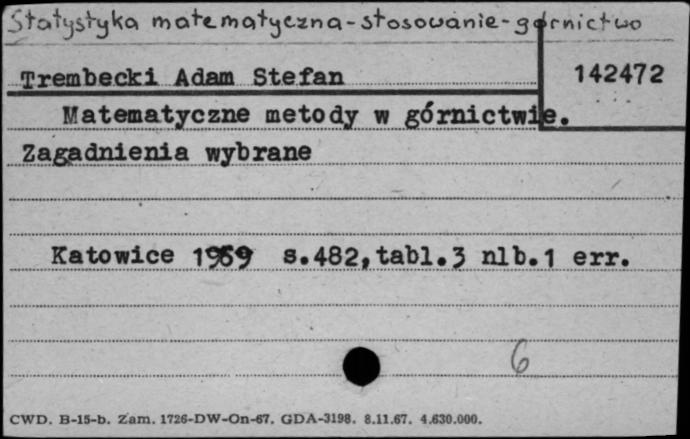 Statystyka matematyczna-stosowanie-górnictwo
Trembecki Adam Stefan
142472
Matematyczne metody w górnictwie.
Zagadnienia wybrane
Katowice 1969 s.482,tabl.3 nlb.1 err.
6
CWD. B-15-b. Zam. 1726-DW-On-67. GDA-3198. 8.11.67. 4.630.000.